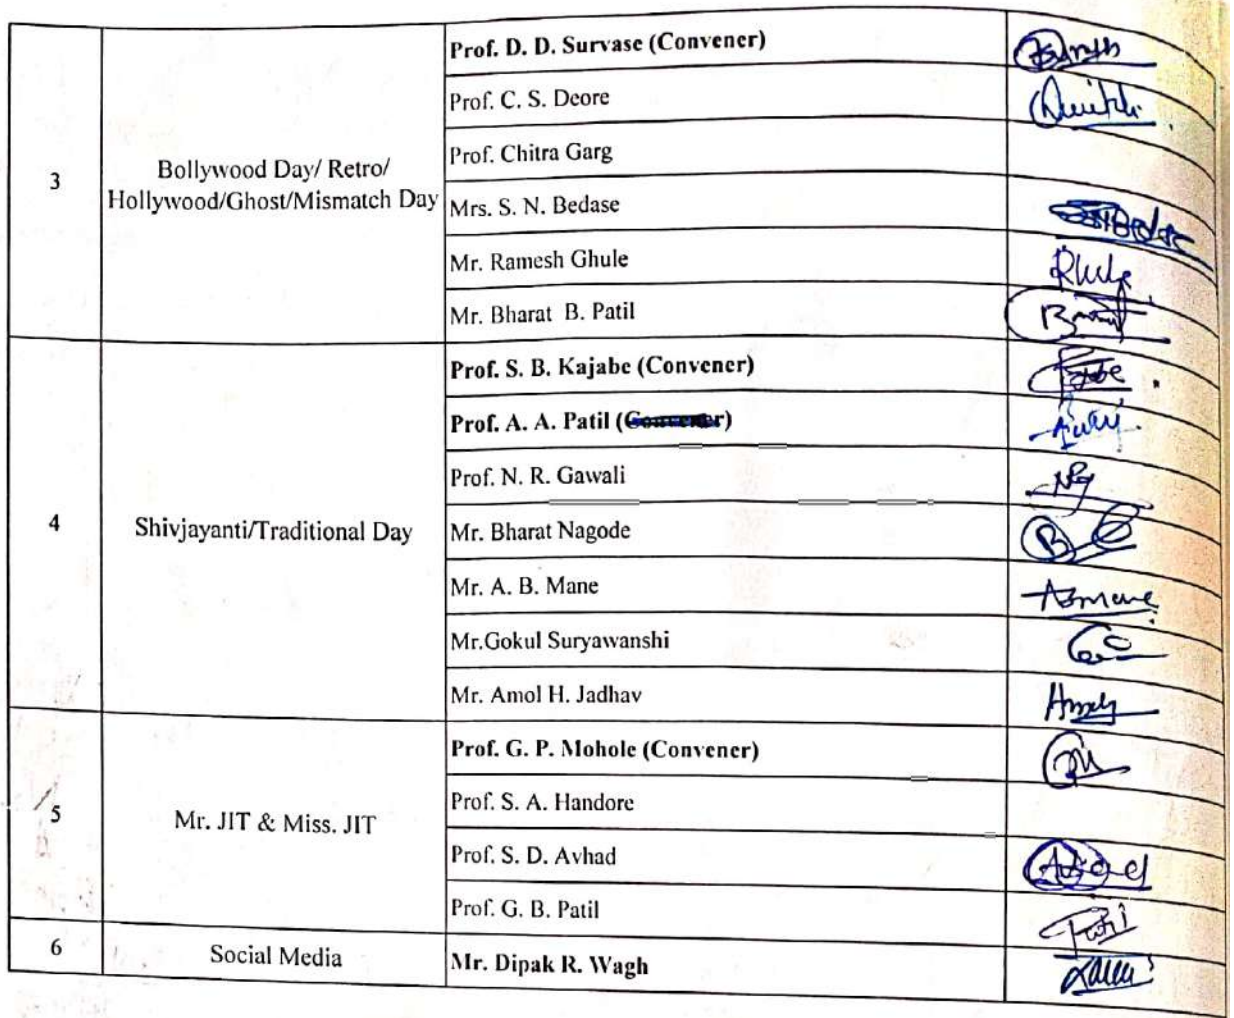 3
Bollywood Day/ Retro/
Hollywood/Ghost/Mismatch Day
Prof. D. D. Survase (Convener)
Prof. C. S. Deore
Prof. Chitra Garg
Mrs. S. N. Bedase
Mr. Ramesh Ghule
Mr. Bharat B. Patil
4
Shivjayanti/Traditional Day
Prof. S. B. Kajabe (Convener)
Prof. A. A. Patil (Convener)
Prof. N. R. Gawali
Mr. Bharat Nagode
Mr. A. B. Mane
Mr.Gokul Suryawanshi
Mr. Amol H. Jadhav
5
Mr. JIT & Miss. JIT
Prof. G. P. Mohole (Convener)
Prof. S. A. Handore
Prof. S. D. Avhad
Prof. G. B. Patil
6
Social Media
Mr. Dipak R. Wagh